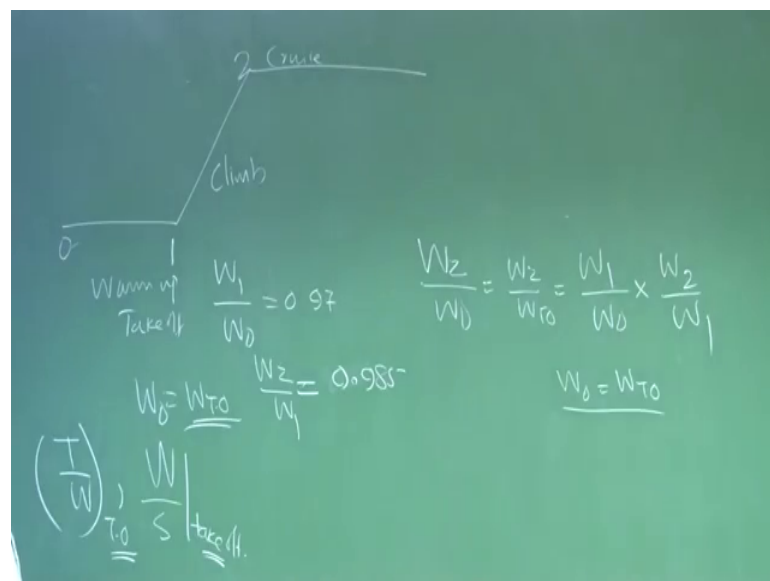 2 Cruise
Climb
0 1
Warm up
Takeoff
W₁/W₀ = 0.97
W₂/W₀ = W₂/W_TO = W₁/W₀ × W₂/W₁
W₀ = W_TO
W₂/W₁ = 0.985
W₀ = W_TO
(T/W)_T.O , W/S|takeoff.